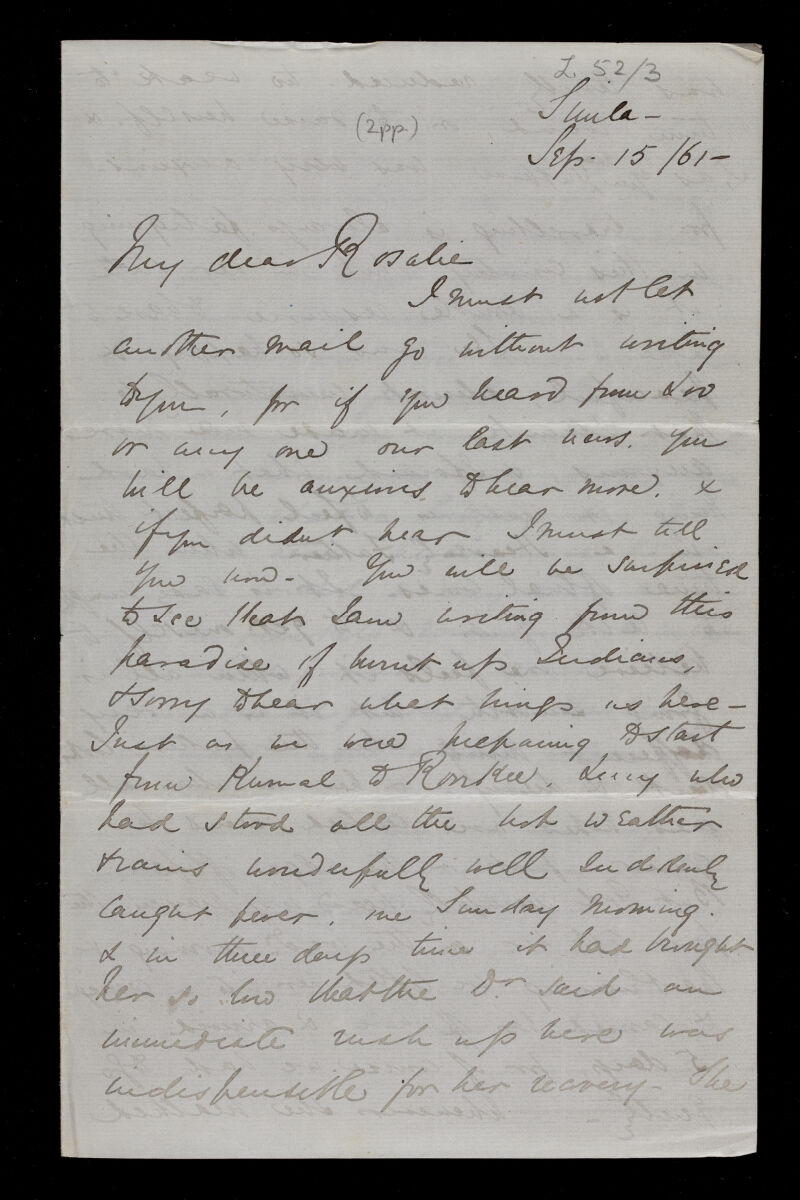 L. 52/3
(2pp.)
Simla -
Sep. 15 /61 -
My dear Rosalie
I must not let
another mail go without writing
to you, for if you heard from Loo
or any one our last news. You
will be anxious to hear more. &
if you didn't hear I must tell
you now - You will be surprised
to see that I am writing from this
paradise of burnt up Indians,
& sorry to hear what brings us here -
Just as we were preparing to start
from Kurnal to Roorkee. Lucy who
had stood all the hot weather
& rains wonderfully well suddenly
caught fever, one Sunday morning.
& in three days time it had brought
her so low that the Dr said an
immediate rush up here was
indispensible for her recovery - She